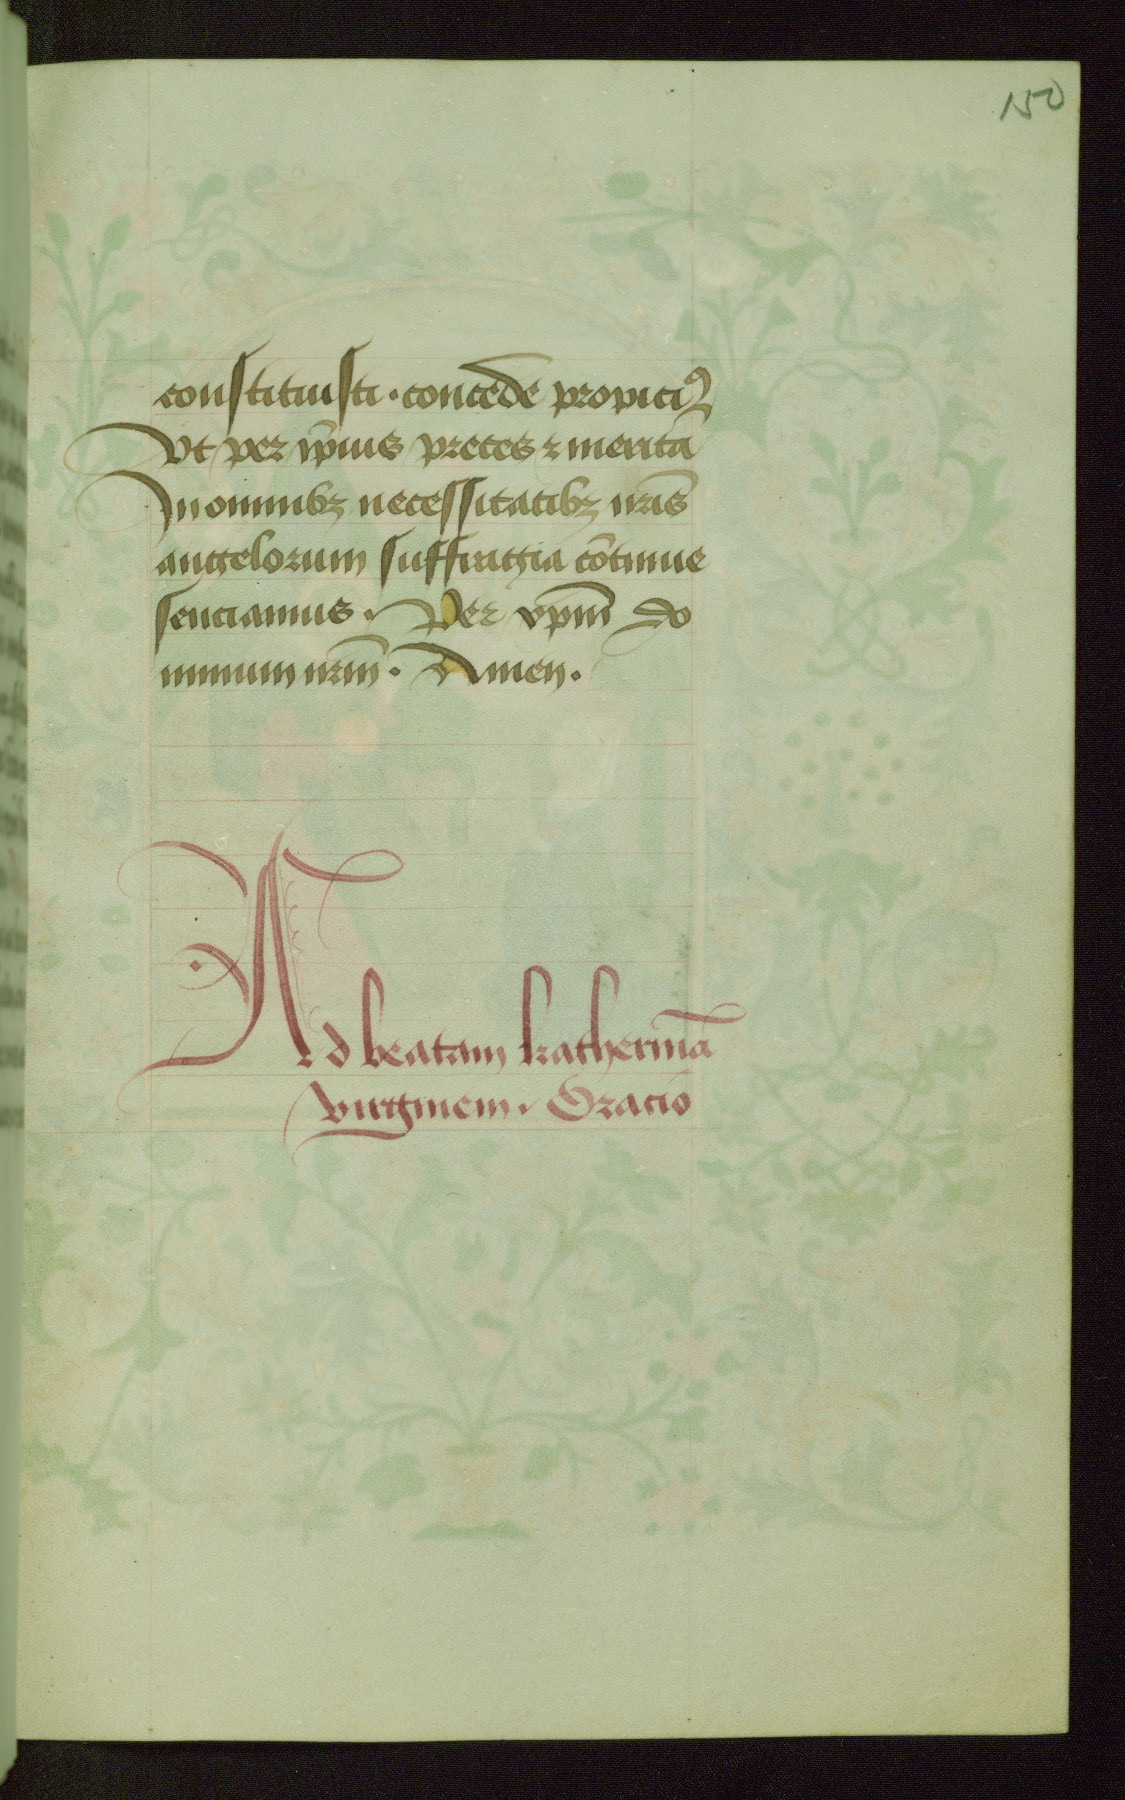 150
constituisti · concede propiciꝰ
Vt per ip̄ius preces ⁊ merita
In omnibꝫ necessitatibꝫ nr̄is
angelorum suffragia cōtinue
senciamus · Per xp̄m do
minum nr̄m · Amen ·
Ad beatam katherinā
virginem · Oracio